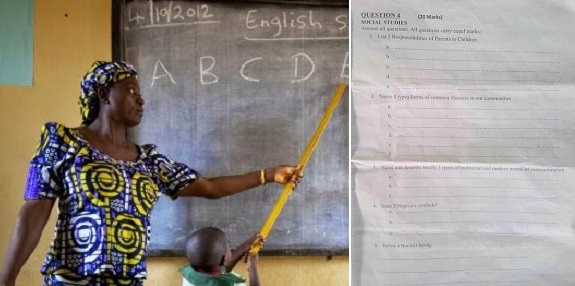 4/10/2012
English S
A B C D E
QUESTION 4 (20 Marks)
SOCIAL STUDIES
Answer all questions. All questions carry equal marks:
1. List 5 Responsibilities of Parents to Children
a.
b.
d.
2. Name 4 types/forms of common illnesses in our communities
a.
b.
d.
3. Name and describe briefly 3 types of traditional and modern means of communication
b.
4. State 3 Nigeria's symbols?
a.
b.
5. Define a Nuclear family